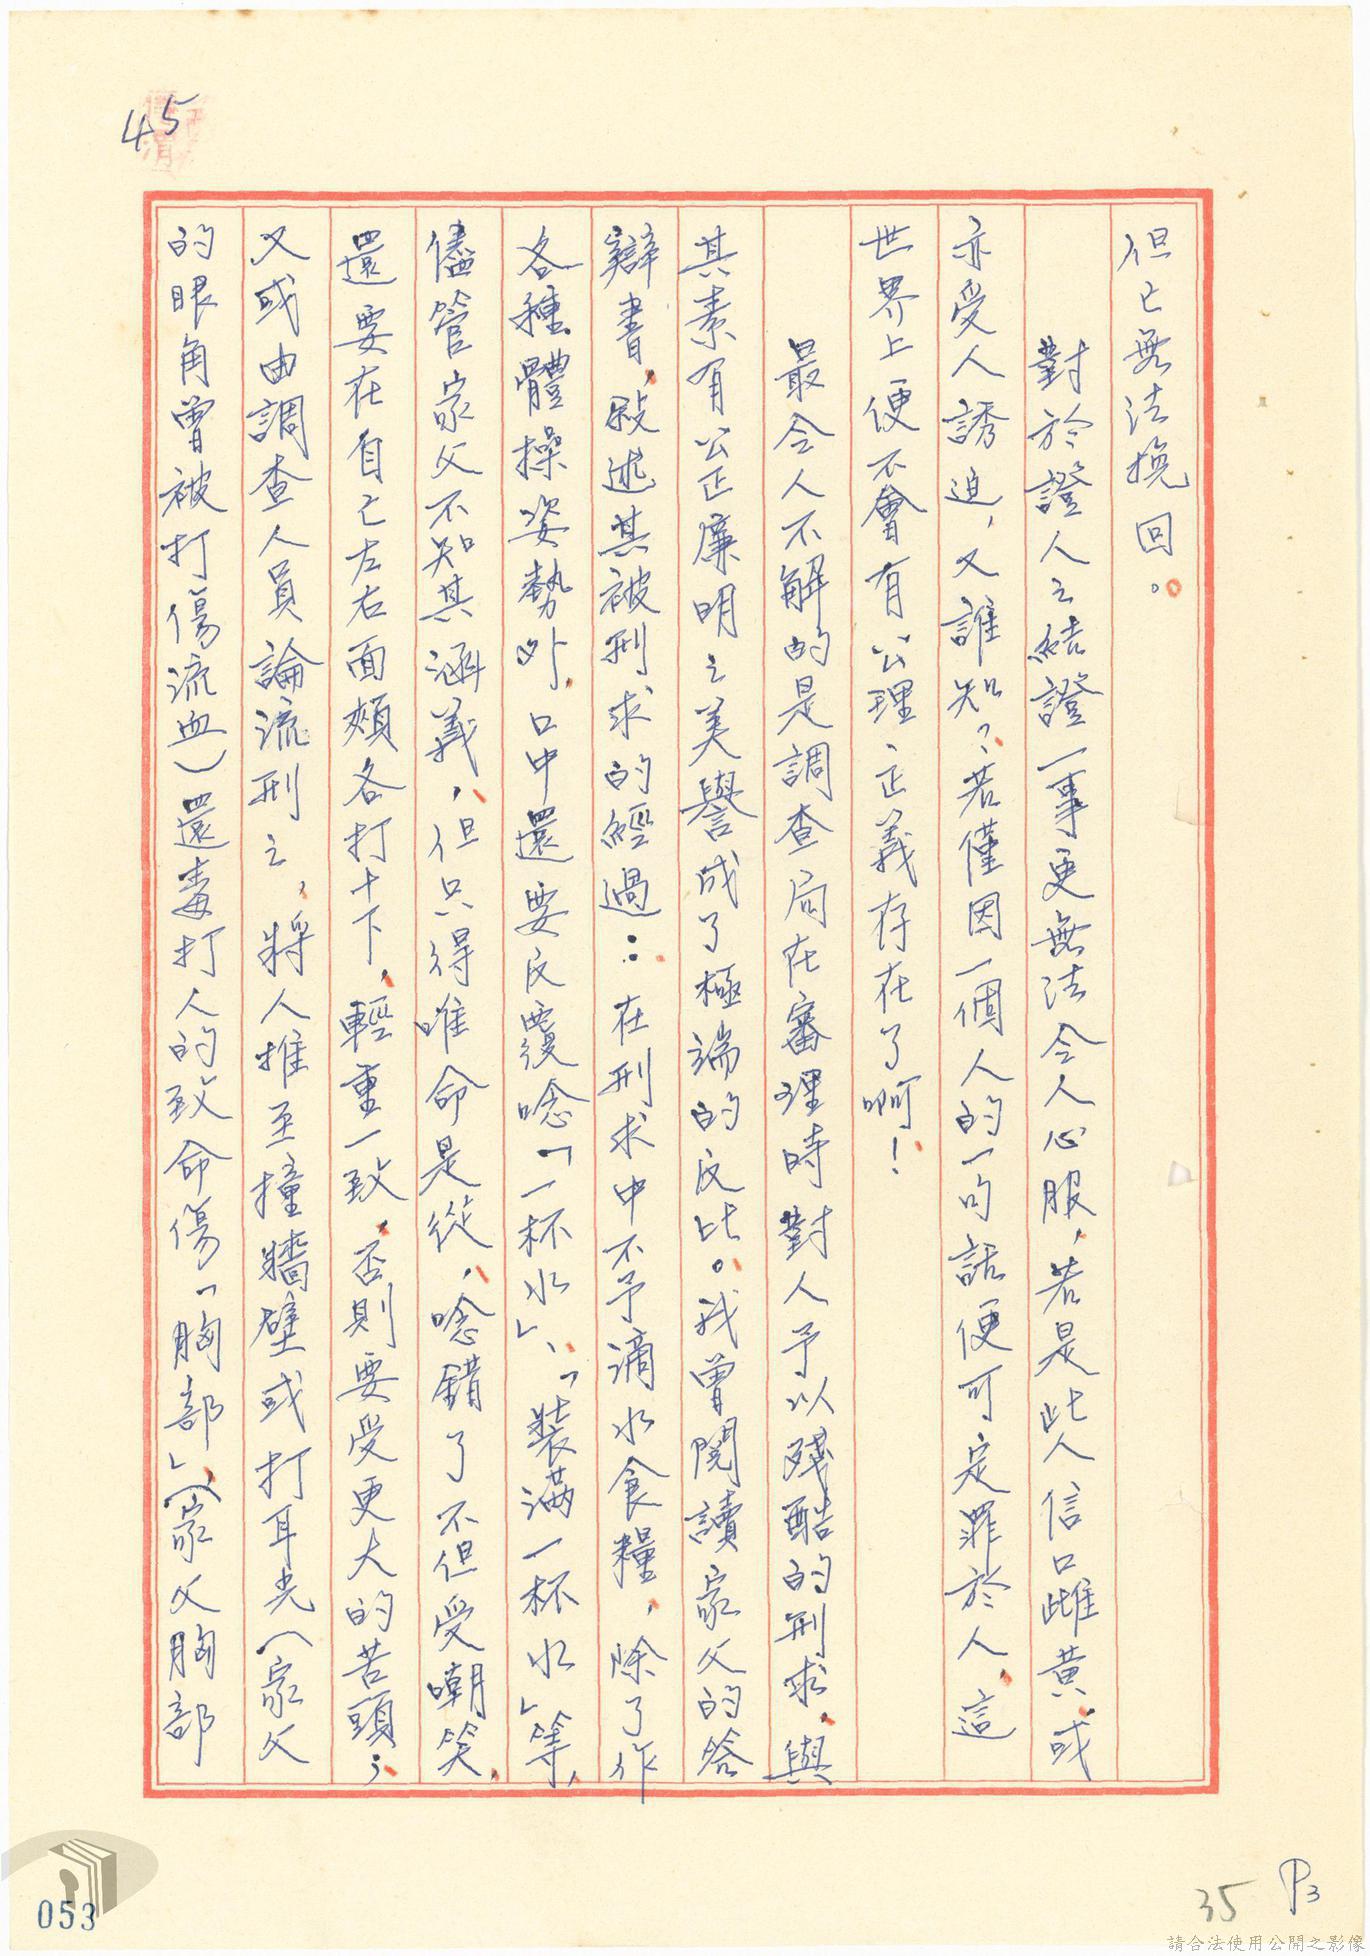 45
但已無法挽回。
對於證人之結證一事更無法令人心服，若是此人信口雌黃，或
亦受人誘迫，又誰知？若僅因一個人的一句話便可定罪於人，這
世界上便不會有公理正義存在了啊！
最令人不解的是調查局在審理時對人予以殘酷的刑求，與
其素有公正廉明之美譽成了極端的反比。我曾閱讀家父的答
辯書，敍述其被刑求的經過：在刑求中不予滴水食糧，除了作
各種體操姿勢外，口中還要反覆唸「一杯水」、「裝滿一杯水」等，
儘管家父不知其涵義，但只得唯命是從，唸錯了不但受嘲笑，
還要在自己左右面頰各打十下，輕重一致，否則要受更大的苦頭；
又或由調查人員論流刑之，將人推至撞牆壁或打耳光（家父
的眼角曾被打傷流血）還毒打人的致命傷「胸部」（家父胸部
053
35
P3
請合法使用公開之影像